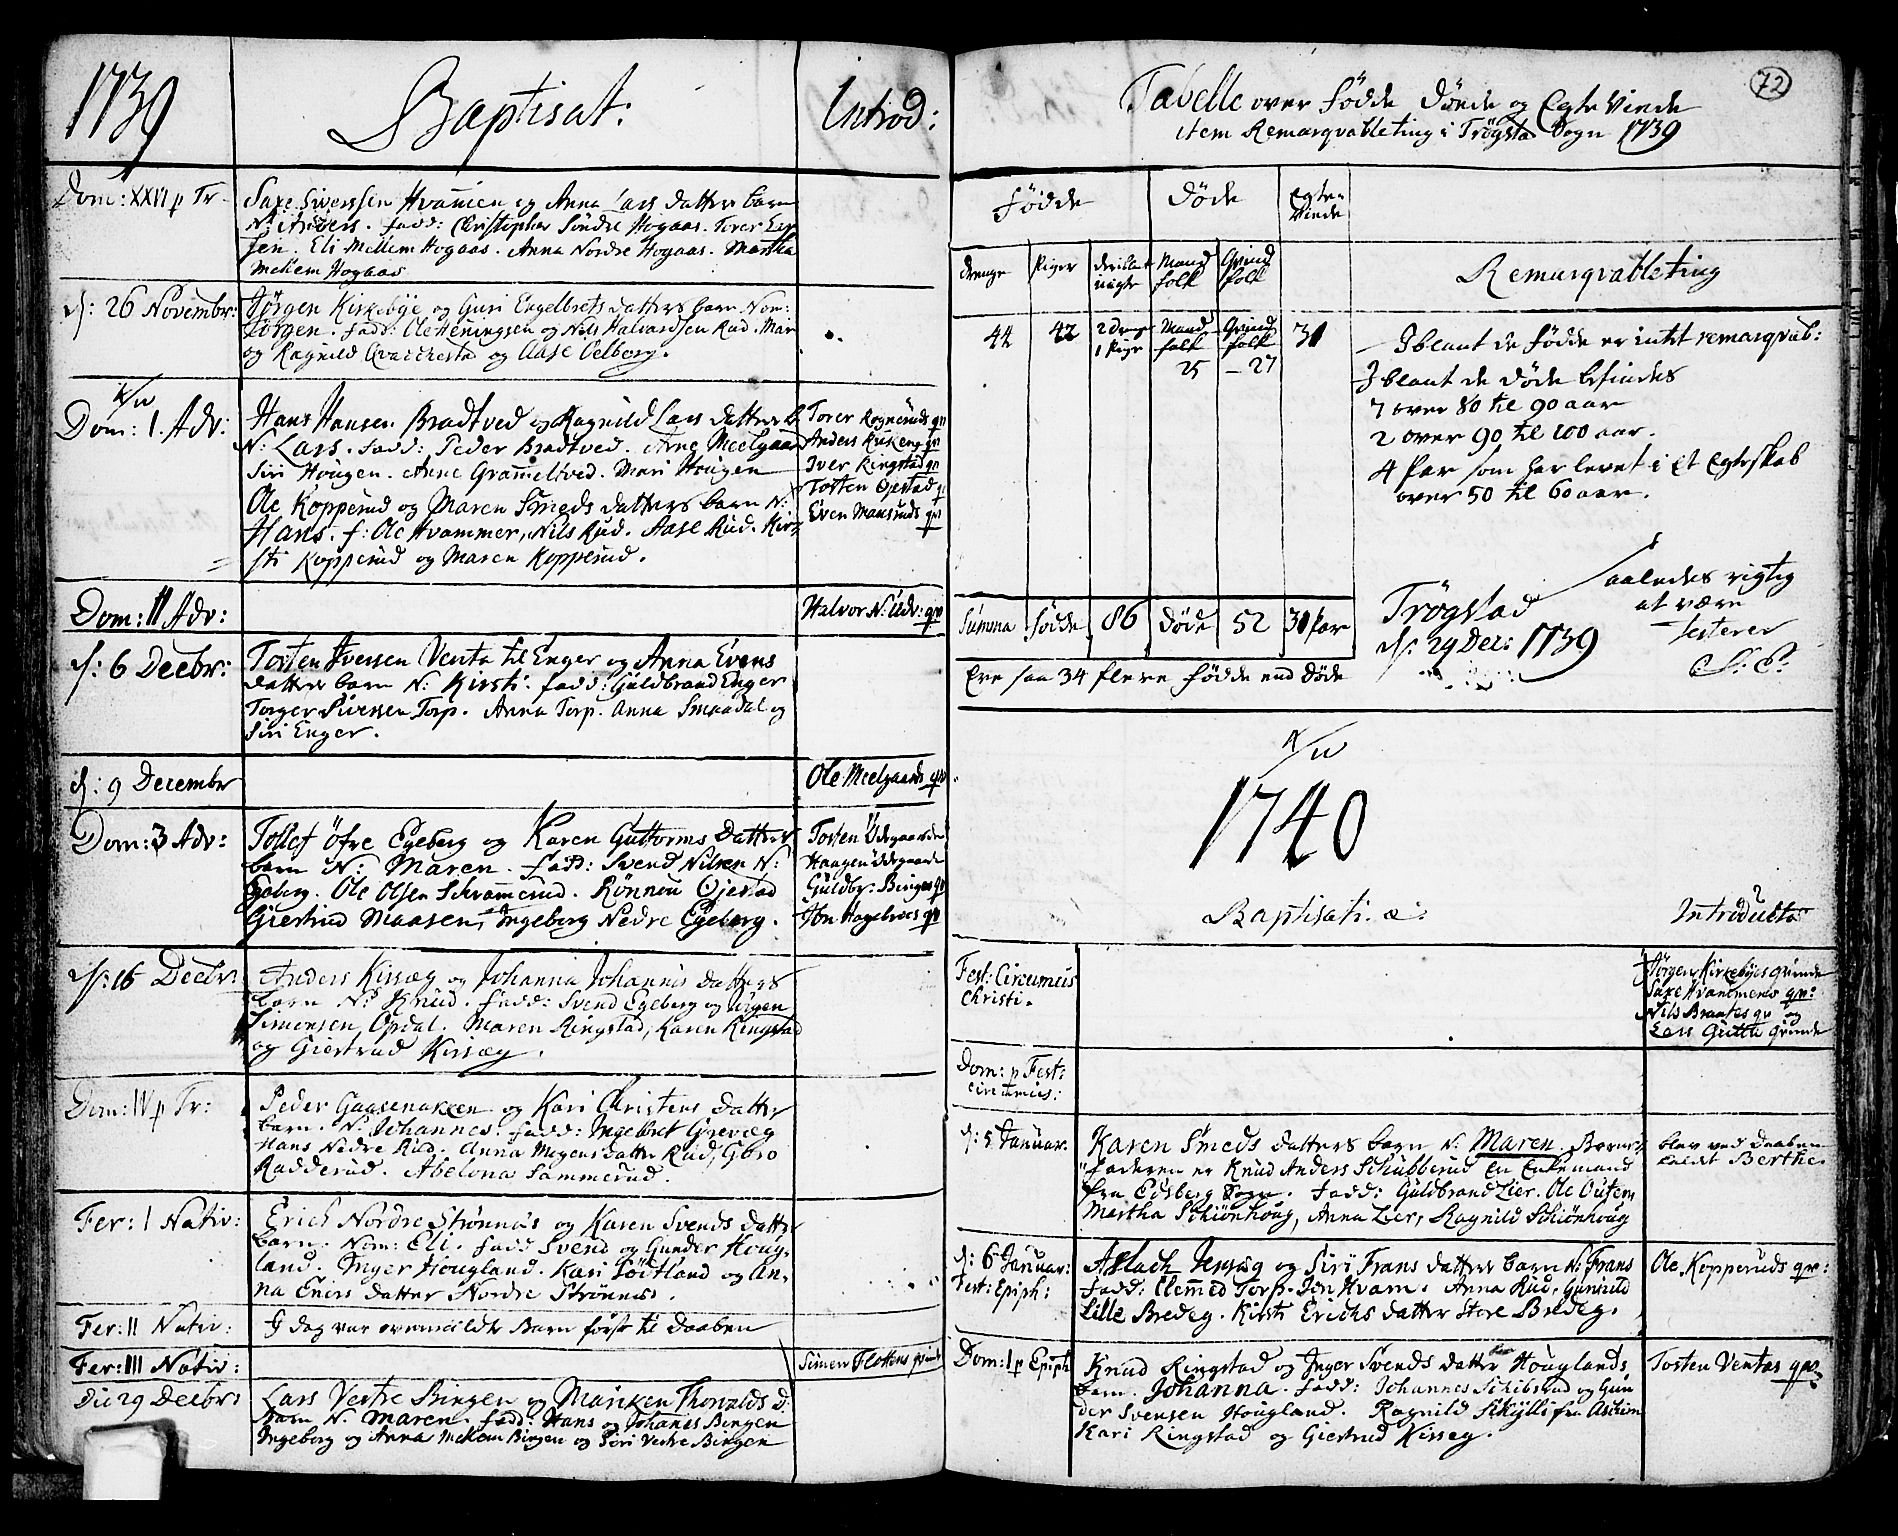 1739
Baptisat:
Introd:
Dom: XXVI p Tr
Saxe Siverssen Hvammen og Anna Lars datters barn
N: Anders. fadd: Christopher Søndre Hogaas. Torer
Eli Mellem Hogaas. Anna Nordre Hogaas. Martha
Mellem Hogaas
d: 26 Novembr:
Jørgen Kirkebye og Guri Engelbrets datters barn Nom:
Jørgen. fadd: Ole Henningsen og Nils Halvardsen Rud. Mari
og Ragnild og Aase Oelborg.
Dom: 1. Adv:
Hans Hansen Bradtved og Ragnild Lars datters b
N: Lars. fadd: Peder Bradtved. Arne Meelgaard
Siri Hougen. Anne Grammeltved. Mari Hougen
Ole Kopperud og Maren Smeds datters barn N:
Hans. f: Ole Hvammer, Nils Rud. Aase Rud. Kir-
sti Kopperud og Maren Kopperud.
Torer Rogneruds qv
Anders Rukeng qv
Iver Ringstad qv
Tosten Ojestad q
Even Mansruds qv
Dom: II Adv:
Halvor N: Udv: qv
d: 6 Decbr:
Tosten Iversen Venta til Enger og Anna Evens
datters barn N: Kirsti. fadd: Guldbrand Enger
Torger Siversen Torp. Anna Torp. Anna Smaadal og
Siri Enger.
d: 9 Decembr
Ole Meelgaards qv
Dom: 3 Adv:
Tollef Öfre Egeberg og Karen Guttorms Datters
barn N: Maren. Fadd: Svend Nilsen N:
Egeberg. Ole Olsen Schrammerud. Rønnou Ojestad
Giertrud Maasen, Ingeborg Nedre Egeberg.
Tosten Udegaards
Haagen Udegaards
Guldbr: Binges qv
Jon qv
d: 16 Decbr:
Anders Kissæg og Johanna Johannis datters
barn N: Knud. fadd: Svend Egeberg og Jørgen
Simonsen Opdal. Maren Ringstad, Karen Ringstad
og Giertrud Kissæg.
Dom: IV p Tr:
Peder Gaasenakken og Kari Christens datter
barn. N: Johannes. fadd: Ingelbret Grevæg
Hans Nedre Rud. Anna Mogens datter Rud, Goro
Radderud. Abelona Sammerud.
Fer: I Nativ:
Erich Nordre Strønnes og Karen Svends datter
barn. Nom: Eli. fadd Svend og Gunder Houg-
land. Inger Hougland. Kari Tödtland og An-
na Eners datter Nordre Strønnes.
Fer: II Nativ:
I dag var ovenmeldte Barn først til Daaben
Fer: III Nativ:
Simen Flottens qvinde
Die 29 Decbr:
Lars Vestre Bingen og Mariken Thorvalds d:
Barn N: Maren. fadd: Hans og Johanes Bingen
Ingeborg og Anna Mellem Bingen og Siri Vestre Bingen
72
Tabelle over Fødde Døde og Egte Viede
item Remarqvable ting i Trøgstad Sogn 1739
Fødde
Døde
Egte-
Viede
Drenge
Piger
Mand
folk
Qvind
folk
Remarqvable ting
44
42
2 drenge
1 Pige
Mand
folk
25
Qvind
folk
- 27
31
Iblant de Fødde er intet remarqvab:
Iblant de Døde befindes
7 over 80 til 90 aar
2 over 90 til 100 aar.
4 Par som har levet i et Egteskab
over 50 til 60 aar.
Summa
Fødde
86
Døde
52
31 Par
Ere saa 34 flere Fødde end Døde
Trøgstad
d: 29 Dec: 1739
Saaledes rigtig
at være
testerer
S: P:
1740
Baptisati. æ:
Introducta
Fest: Circumcis
Christi.
Jørgen Kirkebyes qvinde
Saxe Hvammens qv:
Nils Braates qv og
Lars qvinde
Dom: p Fest:
circumcis:
d: 5 Januar.
Karen Smeds datters barn N: Maren. Barne-
faderen er Knud Anders Schubberud en Enkemand
fra Edsberg Sogn. fadd: Guldbrand Lier. Ole
Martha Schiønhoug, Anna Lier, Ragnild Schiønhoug
blev ved daaben
kaldt Berthe.
d: 6 Januar:
Fest: Epiph:
Aslach Jensæg og Siri Frans datters barn N: Frans
fadd: Clemmed Torp. Jon Hvam. Anna Rud. Gunnild
Lille Bredeg. Kirsti Erichs datter Store Bredeg.
Ole Kopperuds qv:
Dom: 1 p Epiph
Knud Ringstad og Inger Svends datter Houglands
barn. Johanna. fadd: Johannes Schibsrud og Gun
der Svensen Hougland. Ragnild Skylli fra Aschim
Kari Ringstad og Giertrud Kisseg.
Tosten Ventas qv